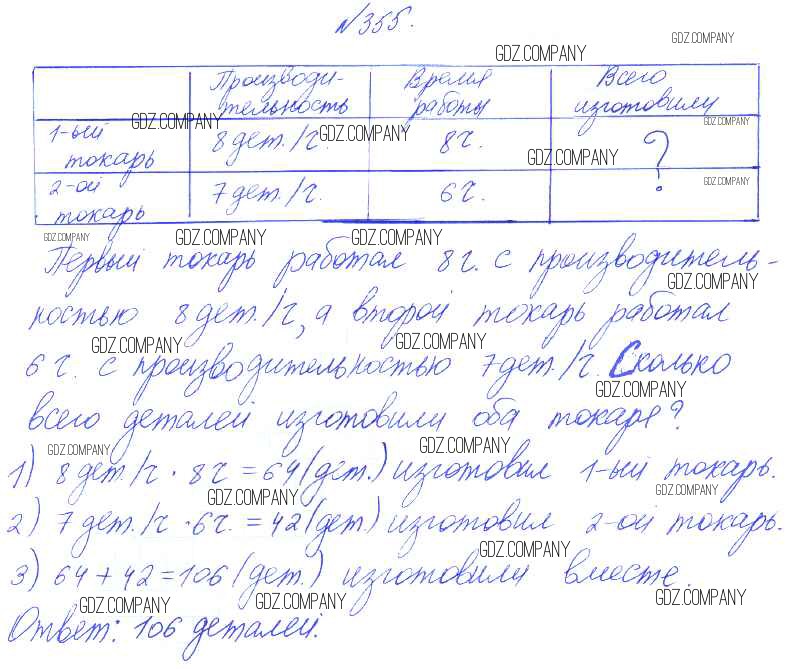 №355.
GDZ.COMPANY
GDZ.COMPANY
Производи- Время Всего
тельность работы изготовили
GDZ.COMPANY GDZ.COMPANY GDZ.COMPANY
1-ый 8 дет./ч. 8ч. ?
токарь GDZ.COMPANY
2-ой 7 дет./ч. 6ч. GDZ.COMPANY
токарь
GDZ.COMPANY GDZ.COMPANY GDZ.COMPANY
Первый токарь работал 8 ч. с производитель-
GDZ.COMPANY
ностью 8 дет./ч, а второй токарь работал
GDZ.COMPANY GDZ.COMPANY
6 ч. с производительностью 7 дет./ч. Сколько
GDZ.COMPANY
всего деталей изготовили оба токаря?
GDZ.COMPANY GDZ.COMPANY
1) 8 дет./ч · 8 ч = 64 (дет.) изготовил 1-ый токарь.
GDZ.COMPANY GDZ.COMPANY
2) 7 дет./ч · 6ч. = 42 (дет.) изготовил 2-ой токарь.
GDZ.COMPANY
3) 64 + 42 = 106 (дет.) изготовили вместе.
GDZ.COMPANY GDZ.COMPANY GDZ.COMPANY
Ответ: 106 деталей.